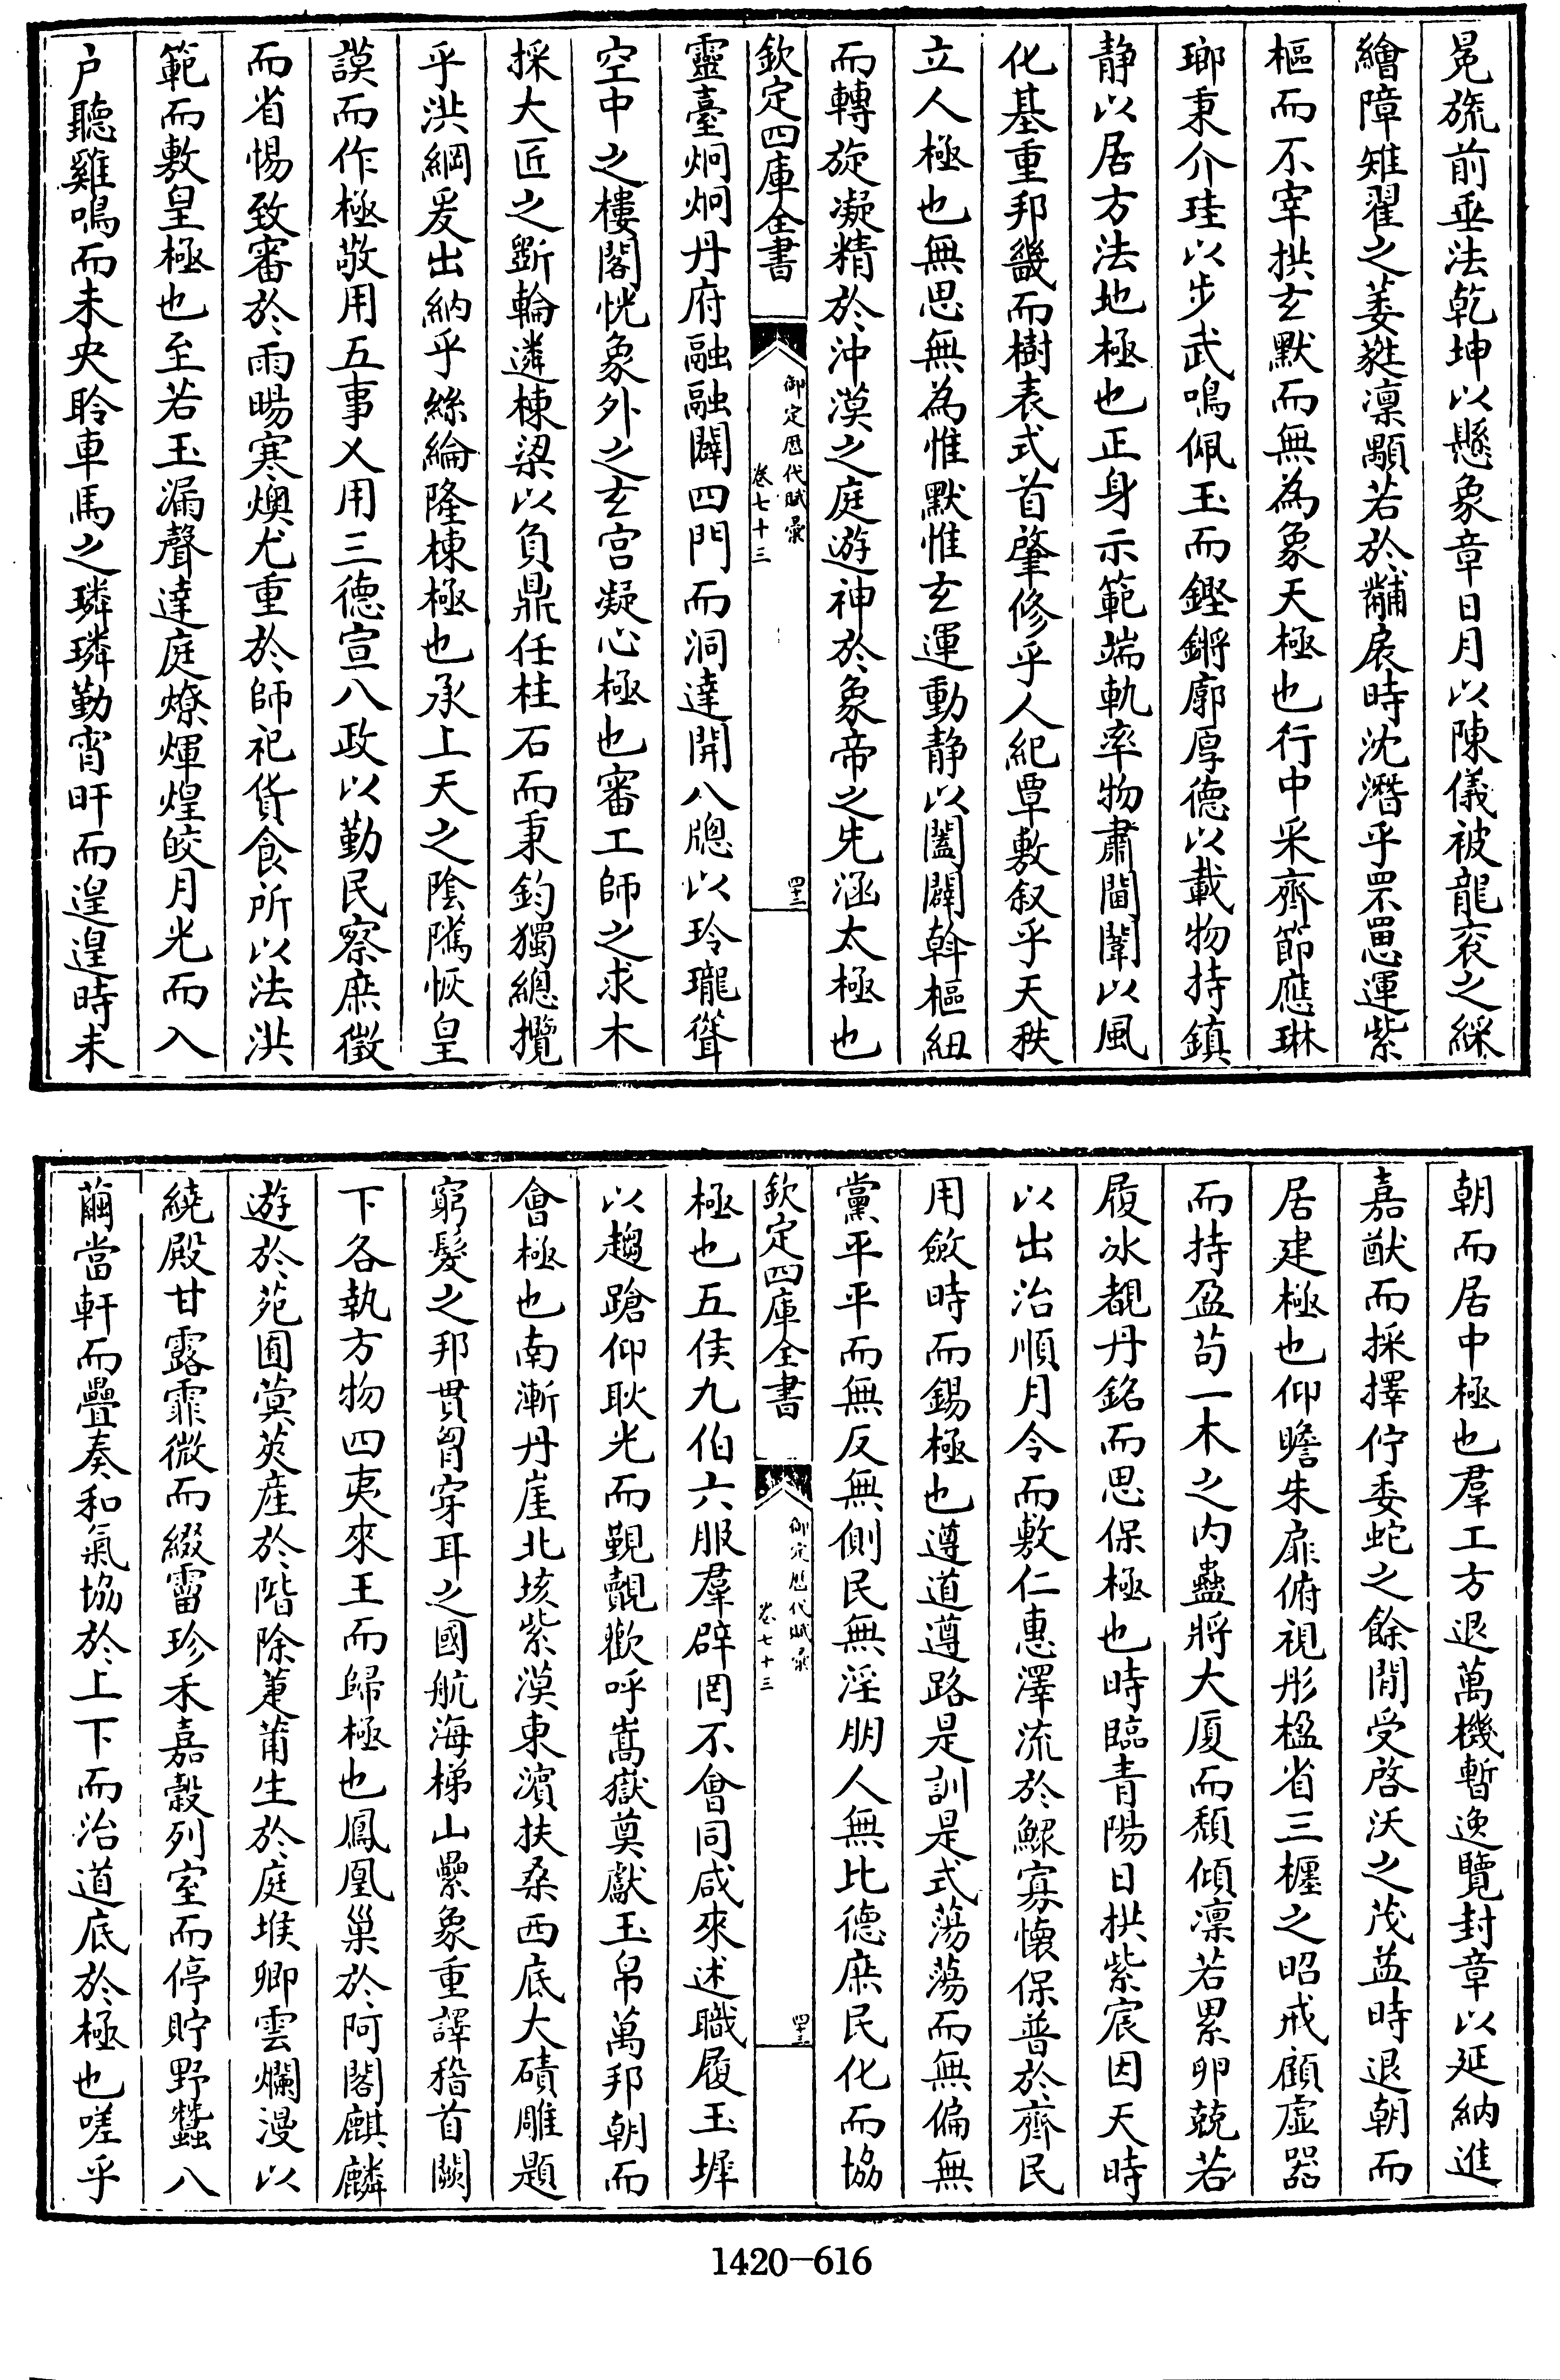 冕旒前垂法乾坤以懸象章日月以陳儀被龍衮之綵
繪障雉翟之葳蕤凛顒若於黼扆時沈潛乎罘罳運紫
樞而不宰拱玄默而無為象天極也行中采齊節應琳
瑯秉介珪以步武鳴佩玉而鏗鏘廓厚德以載物持鎮
静以居方法地極也正身示範端軌率物肅閫闈以風
化基重邦畿而樹表式首肇修乎人紀覃敷叙乎天秩
立人極也無思無為惟默惟玄運動静以闔闢斡樞紐
而轉旋凝精於沖漠之庭遊神於象帝之先涵太極也
欽定四庫全書
御定歴代賦彙
卷七十三
四十三
靈臺炯炯丹府融融闢四門而洞達開八牕以玲瓏聳
空中之樓閣恍象外之玄宫凝心極也審工師之求木
採大匠之斲輪遴棟梁以負鼎任柱石而秉鈞獨總攬
乎洪綱爰出納乎絲綸隆棟極也承上天之陰隲恢皇
謨而作極敬用五事乂用三德宣八政以勤民察庶徴
而省惕致審於雨暘寒燠尤重於師祀貨食所以法洪
範而敷皇極也至若玉漏聲達庭燎煇煌皎月光而入
户聽雞鳴而未央聆車馬之璘璘勤宵旰而遑遑時未
朝而居中極也羣工方退萬機暫逸覽封章以延納進
嘉猷而採擇佇委蛇之餘閒受啓沃之茂益時退朝而
居建極也仰瞻朱扉俯視彤楹省三櫃之昭戒顧虚器
而持盈苟一木之内蠱將大厦而頽傾凛若累卵兢若
履冰覩丹銘而思保極也時臨青陽日拱紫宸因天時
以出治順月令而敷仁惠澤流於鰥寡懷保普於齊民
用斂時而錫極也遵道遵路是訓是式蕩蕩而無偏無
黨平平而無反無側民無淫朋人無比德庶民化而協
欽定四庫全書
御定歴代賦彙
卷七十三
四十三
極也五侯九伯六服羣辟罔不會同咸來述職履玉墀
以趨蹌仰耿光而覲覿歡呼嵩嶽奠獻玉帛萬邦朝而
會極也南漸丹崖北垓紫漠東濱扶桑西底大磧雕題
窮髮之邦貫胷穿耳之國航海梯山纍象重譯稽首闕
下各執方物四夷來王而歸極也鳳凰巢於阿閣麒麟
遊於苑囿蓂莢産於階除萐莆生於庭堠卿雲爛漫以
繞殿甘露霏微而綴霤珍禾嘉穀列室而停貯野蠶八
繭當軒而疊奏和氣協於上下而治道底於極也嗟乎
1420-616